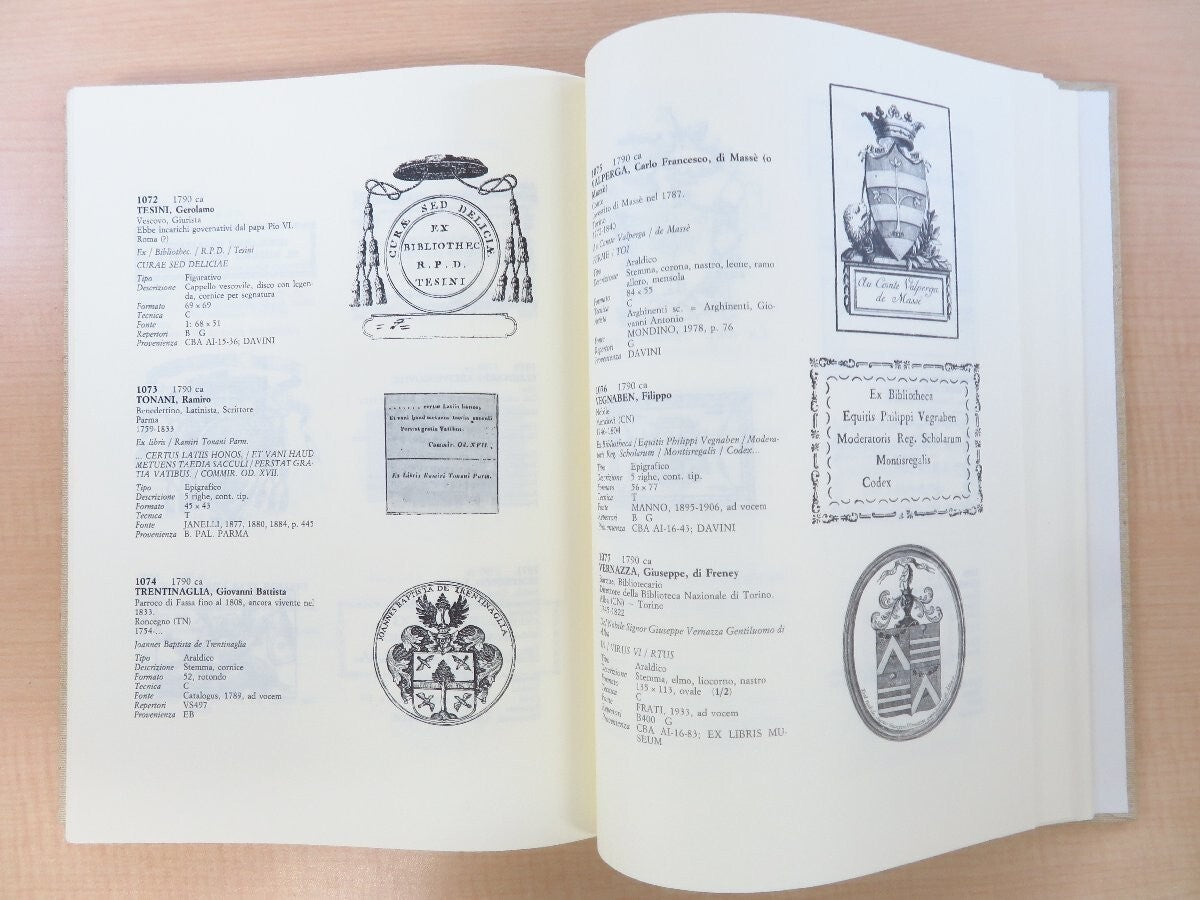 1072 1790 ca
TESINI, Gerolamo
Vescovo, Giurista
Ebbe incarichi governativi dal papa Pio VI.
Roma (?)
Ex / Bibliothec. / R.P.D. / Tesini
CURAE SED DELICIAE
Tipo Figurativo
Descrizione Cappello vescovile, disco con legen-
da, cornice per segnatura
Formato 69 × 69
Tecnica C
Fonte 1: 68 × 51
Repertori B G
Provenienza CBA AI-15-36; DAVINI
CURÆ SED DELICIÆ
EX
BIBLIOTHEC
R.P.D.
TESINI
1073 1790 ca
TONANI, Ramiro
Benedettino, Latinista, Scrittore
Parma
1759-1833
Ex libris / Ramiri Tonani Parm.
... CERTUS LATIIS HONOS, / ET VANI HAUD
METUENS TAEDIA SACCULI / PERSTAT GRA-
TIA VATIBUS. / COMMIR. OD. XVII.
Tipo Epigrafico
Descrizione 5 righe, cont. tip.
Formato 45 × 43
Tecnica T
Fonte JANELLI, 1877, 1880, 1884, p. 445
Provenienza B. PAL. PARMA
....... certus Latiis honos,
Et vani haud metuens taedia
Perstat gratia Vatibus.
Commir. Od. XVII.
Ex Libris Ramiri Tonani Parm.
1074 1790 ca
TRENTINAGLIA, Giovanni Battista
Parroco di Fassa fino al 1808, ancora vivente nel
1833.
Roncegno (TN)
1754-...
Joannes Baptista de Trentinaglia
Tipo Araldico
Descrizione Stemma, cornice
Formato 52, rotondo
Tecnica C
Fonte Catalogus, 1789, ad vocem
Repertori VS497
Provenienza EB
JOANNES BAPTISTA DE TRENTINAGLIA
1075 1790 ca
VALPERGA, Carlo Francesco, di Massè (o
di Massè nel 1787.
-1840
Au Conte Valperga / de Massè
Tipo Araldico
Descrizione Stemma, corona, nastro, leone, ramo
alloro, mensola
Formato 84 × 55
Tecnica C
Arghinenti sc. = Arghinenti, Gio-
vanni Antonio
Fonte MONDINO, 1978, p. 76
Repertori G
Provenienza DAVINI
Au Comte Valperga
de Masse
1076 1790 ca
VEGNABEN, Filippo
Nobile
(CN)
-1804
Ex Bibliotheca / Equitis Philippi Vegnaben / Modera-
toris Reg. Scholarum / Montisregalis / Codex...
Tipo Epigrafico
Descrizione 5 righe, cont. tip.
Formato 56 × 77
Tecnica T
Fonte MANNO, 1895-1906, ad vocem
Repertori B G
Provenienza CBA AI-16-43; DAVINI
Ex Bibliotheca
Equitis Philippi Vegnaben
Moderatoris Reg. Scholarum
Montisregalis
Codex
1077 1790 ca
VERNAZZA, Giuseppe, di Freney
Barone, Bibliotecario
Direttore della Biblioteca Nazionale di Torino.
Alba (CN) – Torino
1745-1822
Del Nobile Signor Giuseppe Vernazza Gentiluomo di
Alba
/ VIRUS VI / RTUS
Tipo Araldico
Descrizione Stemma, elmo, liocorno, nastro
Formato 135 × 113, ovale (1/2)
Tecnica C
Fonte FRATI, 1933, ad vocem
Repertori B400 G
Provenienza CBA AI-16-83; EX LIBRIS MU-
SEUM